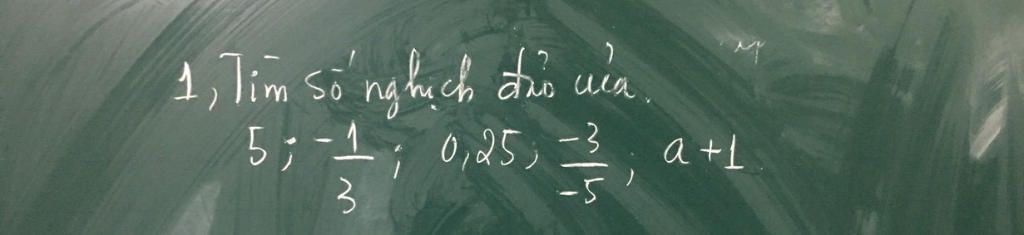 1, Tìm số nghịch đảo của.
5; -1/3; 0,25; -3/-5; a+1